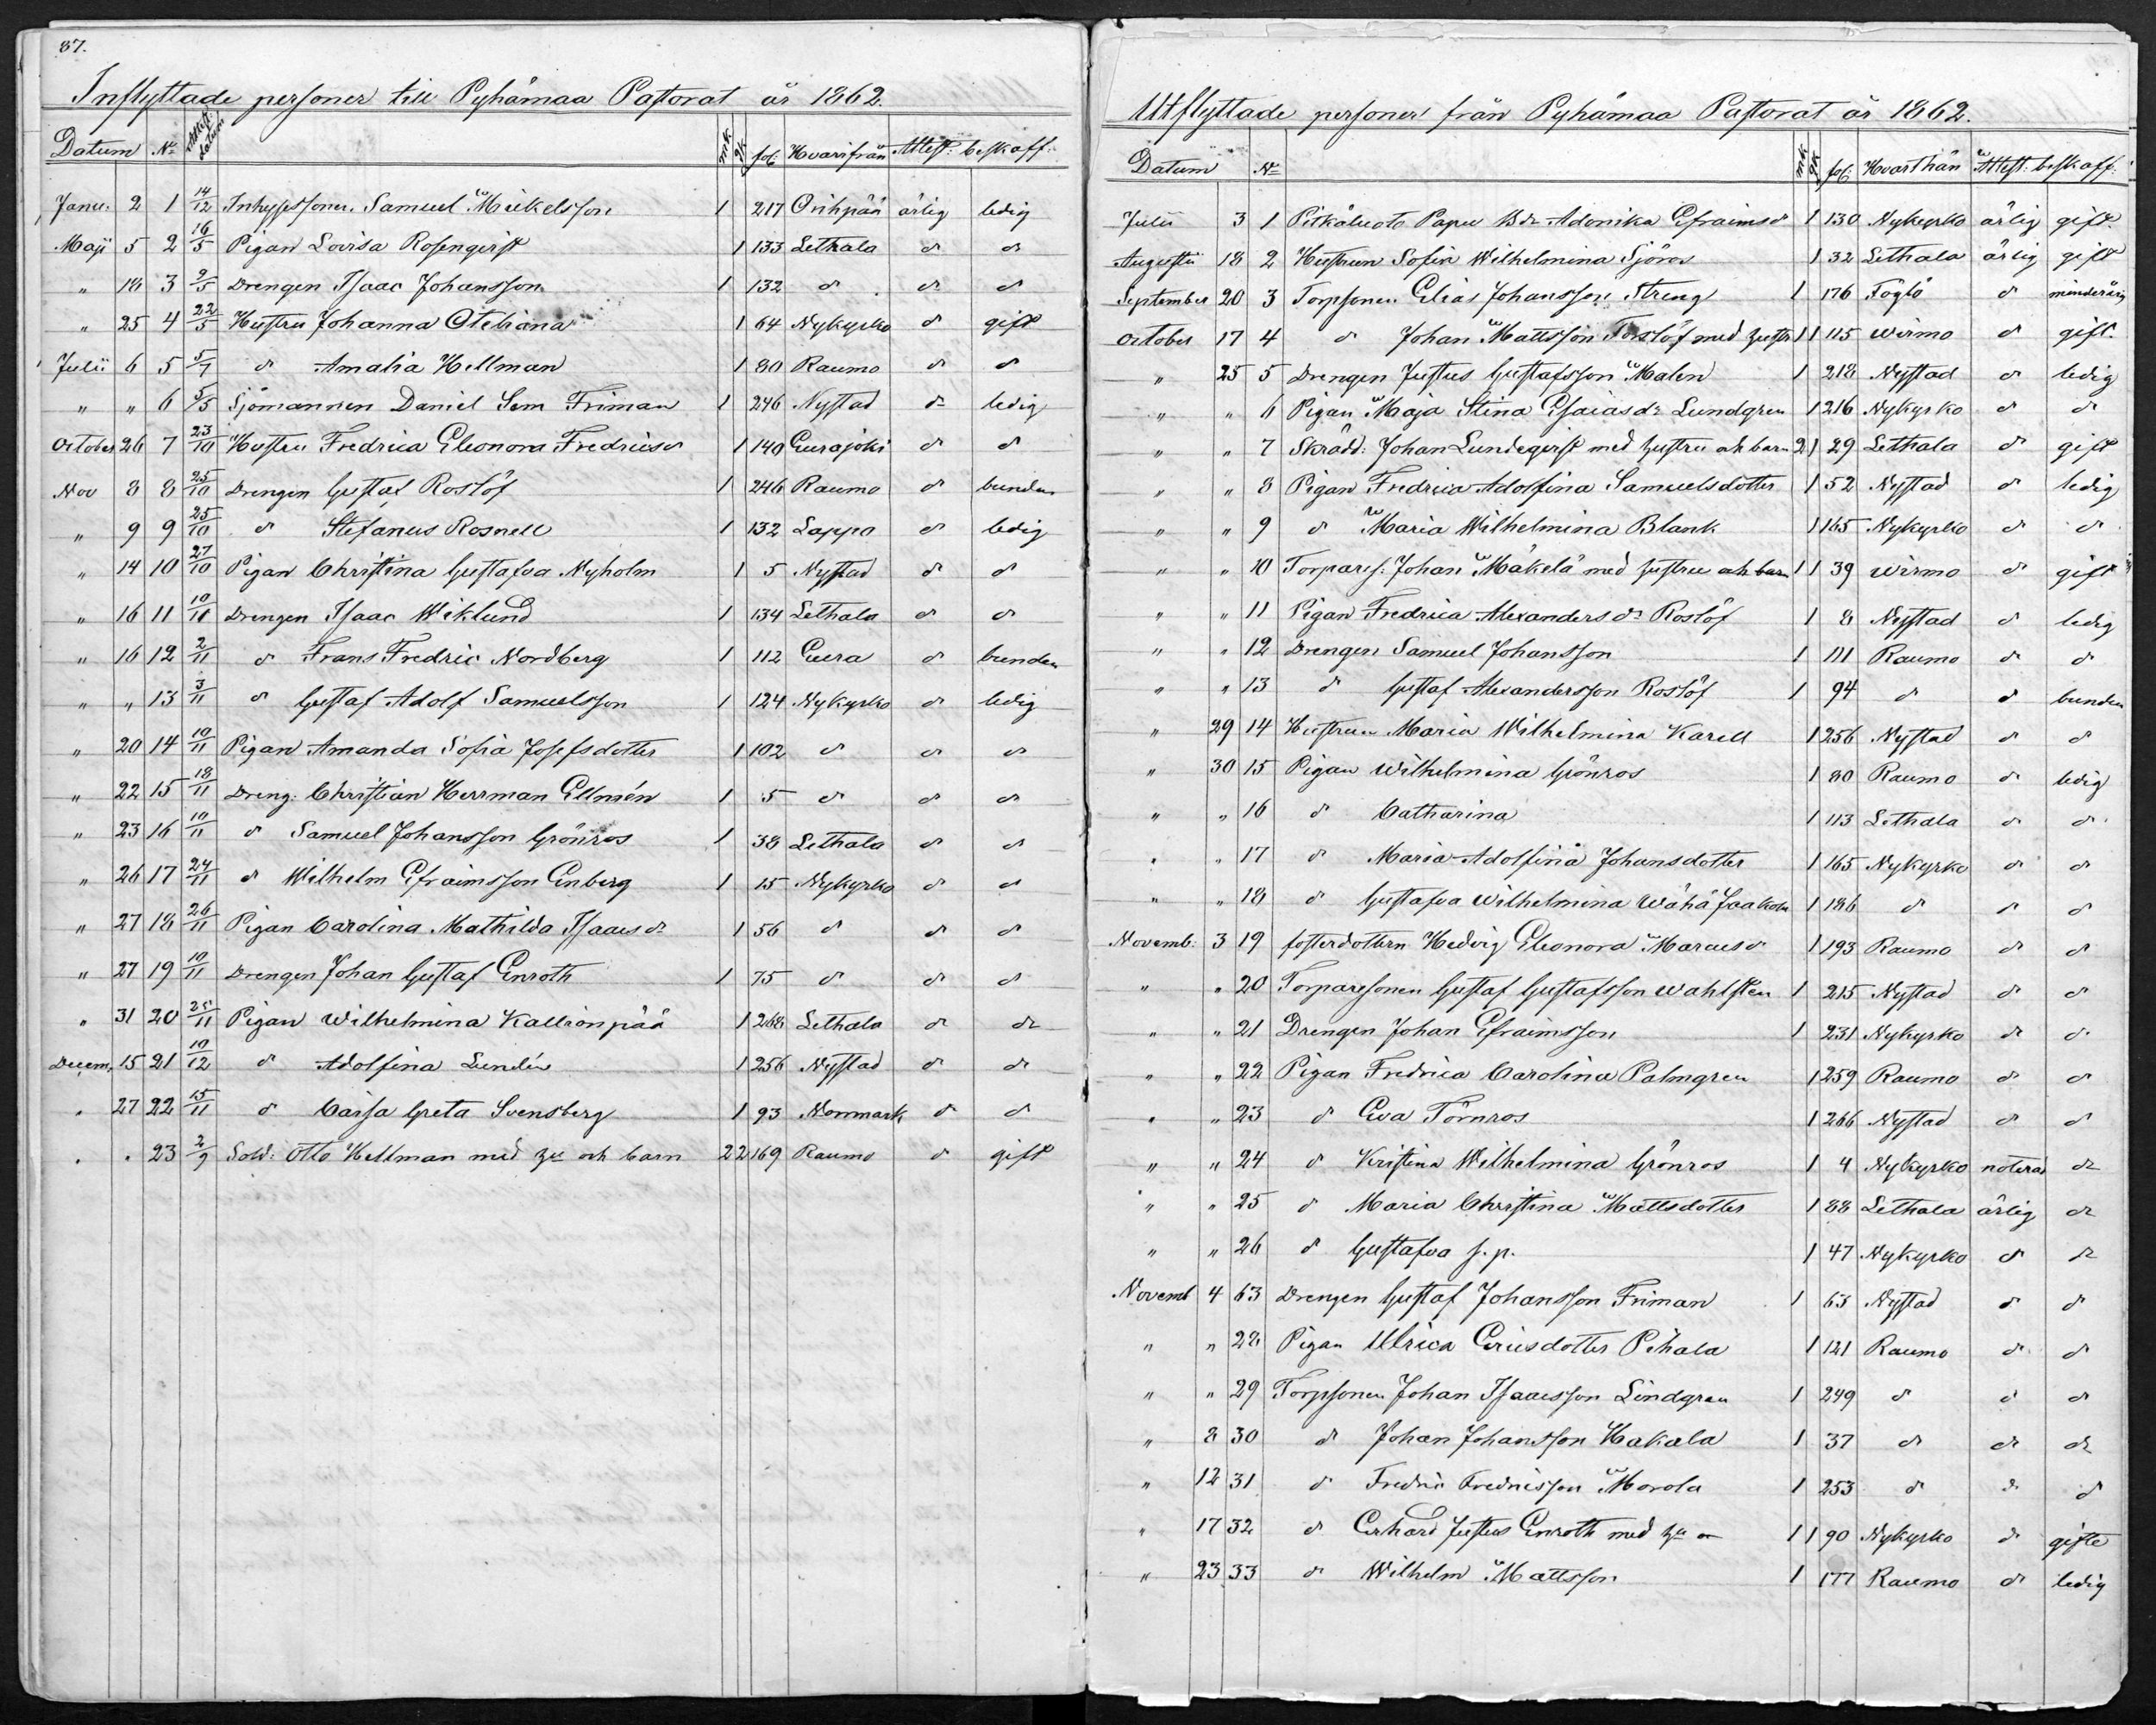 87.
Inflyttade personer till Pyhämaa Pastorat år 1862.
Datum No Attest: datum mk. qk. fol: Hvarifrån Attest: beskaff:
Janu: 2 1 14/12 Inhysessonen Samuel Mickelsson 1 217 Orihpää ärlig ledig
Maji 5 2 16/5 Pigan Lovisa Rosenqvist 1 133 Lethala do do
" 18 3 9/5 Drengen Isaac Johansson 1 132 do do do
" 25 4 22/5 Hustru Johanna Oteliana 1 64 Nykyrko do gift
Julii 6 5 5/7 do Amalia Hellman 1 80 Raumo do do
" " 6 5/5 Sjömannen Daniel Sem Friman 1 246 Nystad do ledig
October 26 7 23/10 Hustru Fredrica Eleonora Fredricsd 1 140 Eurajoki do do
Nov 8 8 25/10 Drengen Gustaf Roslöf 1 246 Raumo do bunden
" 9 9 25/10 do Stefanus Rosnell 1 132 Lappo do ledig
" 14 10 27/10 Pigan Christina Gustafva Nyholm 1 5 Nystad do do
" 16 11 10/11 Drengen Isaac Wiklund 1 134 Lethala do do
" 16 12 2/11 do Frans Fredric Nordberg 1 112 Eura do bunden
" " 13 3/11 do Gustaf Adolf Samuelsson 1 124 Nykyrko do ledig
" 20 14 10/11 Pigan Amanda Sofia Josefsdotter 1 102 do do do
" 22 15 18/11 Dreng. Christian Herrman Ellmén 1 5 do do do
" 23 16 10/11 do Samuel Johansson Grönros 1 38 Lethala do do
" 26 17 24/11 do Wilhelm Efraimsson Enberg 1 15 Nykyrko do do
" 27 18 26/11 Pigan Carolina Mathilda Isaacsdr 1 56 do do do
" 27 19 10/11 Drengen Johan Gustaf Enroth 1 75 do do do
" 31 20 25/11 Pigan Wilhelmina Kallionpää 1 268 Lethala do do
Decem. 15 21 10/12 do Adolfina Lundén 1 256 Nystad do do
" 27 22 15/11 do Caisa Greta Svensberg 1 93 Norrmark do do
" " 23 2/9 Sold: Otto Hellman med hu och barn 2 2 169 Raumo do gift
Utflyttade personer från Pyhämaa Pastorat år 1862.
Datum No mk. qk. fol: Hvarthän Attest: beskaff:
Julii 3 1 Pitkäluoto Papu Bdr Adonika Efraimsdr 1 130 Nykyrko ärlig gift.
Augusti 18 2 Hustrun Sofia Wilhelmina Sjöros 1 32 Lethala ärlig gift
September 20 3 Torpsonen Elias Johansson Streng 1 176 Föglö do minderårig
October 17 4 do Johan Mattsson Torslöf med hustr 1 1 115 Wirmo do gift.
" 25 5 Drengen Justus Gustafsson Malen 1 218 Nystad do ledig
" " 6 Pigan Maja Stina Esaiasdr Lundgren 1 216 Nykyrko do do
" " 7 Skrädd: Johan Lundeqvist med hustru och barn 2 1 29 Lethala do gift
" " 8 Pigan Fredrica Adolfina Samuelsdotter 1 52 Nystad do ledig
" " 9 do Maria Wilhelmina Blank 1 165 Nykyrko do do
" " 10 Torpares: Johan Mäkelä med hustru och barn 1 1 39 Wirmo do gift
" " 11 Pigan Fredrica Alexandersdr Roslöf 1 8 Nystad do ledig
" " 12 Drengen Samuel Johansson 1 111 Raumo do do
" " 13 do Gustaf Alexandersson Roslöf 1 94 do do bunden
" 29 14 Hustrun Maria Wilhelmina Karell 1 256 Nystad do do
" 30 15 Pigan Wilhelmina Grönros 1 80 Raumo do ledig
" " 16 do Catharina 1 113 Lethala do do
" " 17 do Maria Adolfina Johansdotter 1 165 Nykyrko do do
" " 18 do Gustafva Wilhelmina Wähä Jaakola 1 186 do do do
Novemb: 3 19 fosterdottern Hedvig Eleonora Marcusdr 1 193 Raumo do do
" " 20 Torparesonen Gustaf Gustafsson Wahlsten 1 215 Nystad do do
" " 21 Drengen Johan Efraimsson 1 231 Nykyrko do do
" " 22 Pigan Fredrica Carolina Palmgren 1 259 Raumo do do
" " 23 do Eva Törnros 1 266 Nystad do do
" " 24 do Kristina Wilhelmina Grönros 1 4 Nykyrko noterad do
" " 25 do Maria Christina Mattsdotter 1 88 Lethala ärlig do
" " 26 do Gustafva s.p. 1 47 Nykyrko do do
Novemb 4 63 Drengen Gustaf Johansson Friman 1 63 Nystad do do
" " 28 Pigan Ulrica Ericsdotter Pihala 1 121 Raumo do do
" " 29 Torpsonen Johan Isaacsson Lindgren 1 249 do do do
" 8 30 do Johan Johansson Hakala 1 37 do do do
" 12 31 do Fredric Fredricsson Morola 1 253 do do do
" 17 32 do Erhard Justus Enroth med hu 1 1 90 Nykyrko do gifte
" 23 33 do Wilhelm Mattsson 1 177 Raumo do ledig